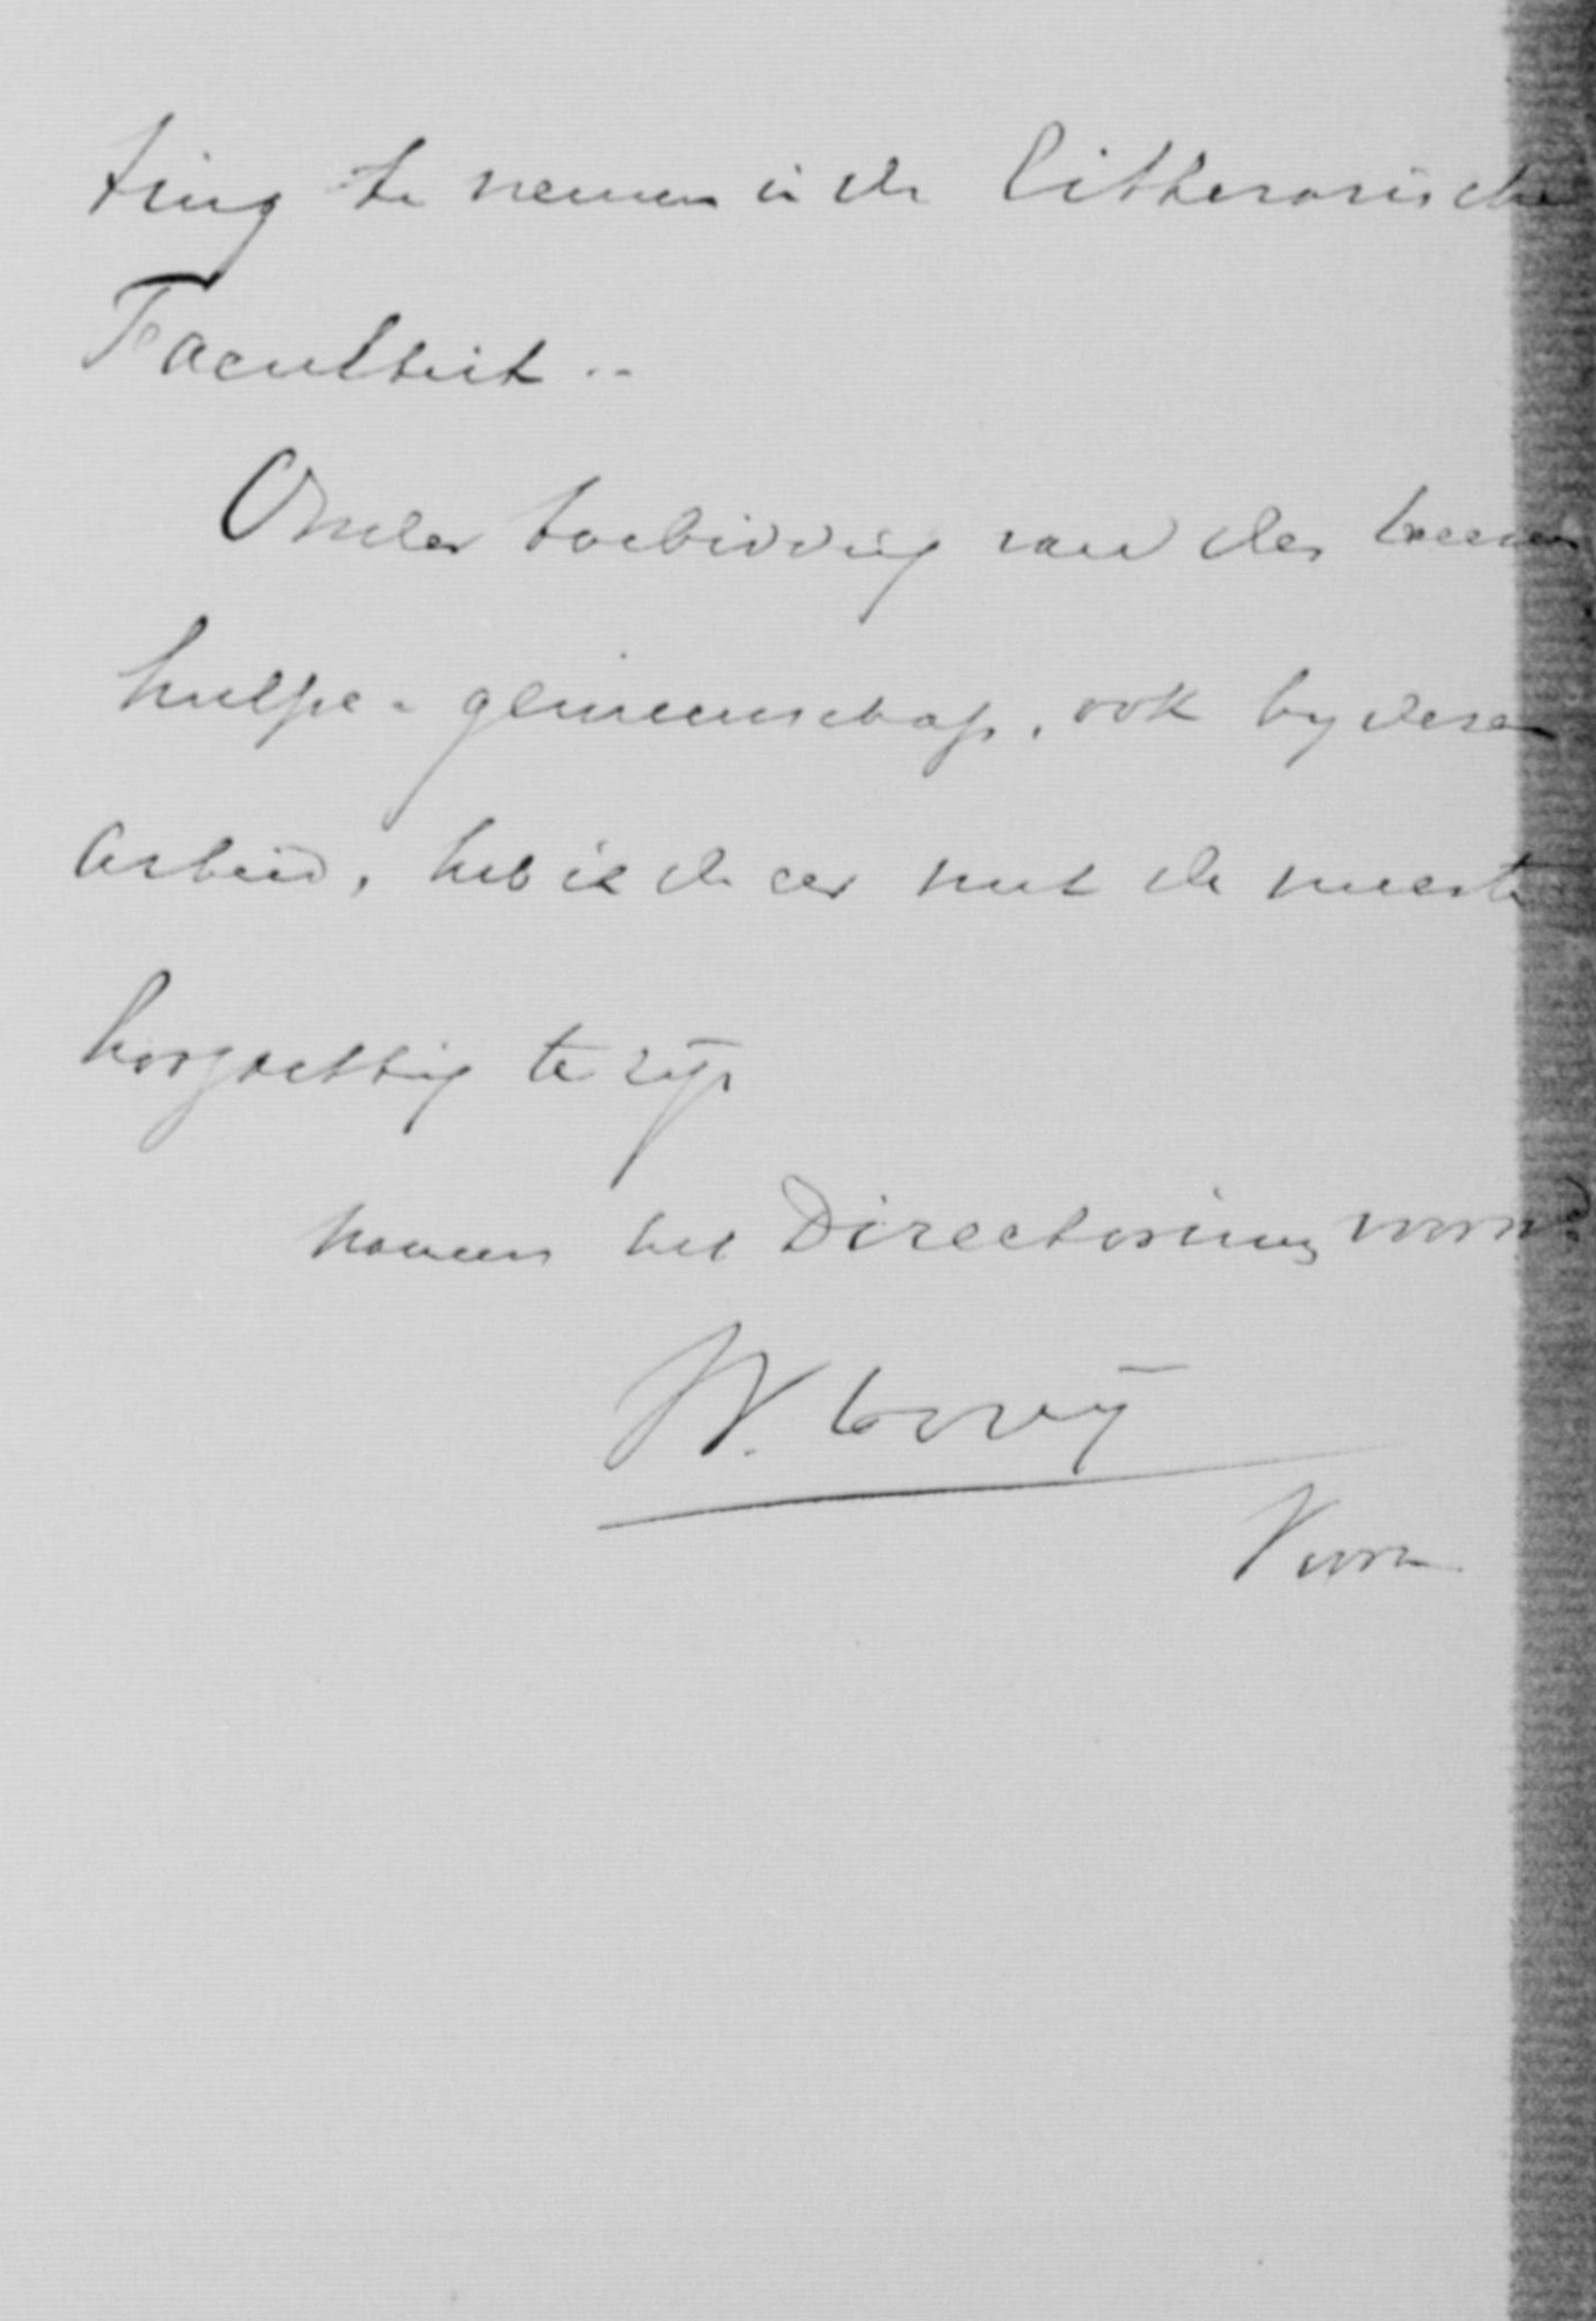 ting te nemen in de litterarische
Faculteit..
Onder toebidding van des Heeren
hulpe & gemeenschap, ook by dezen
arbeid, heb ik de eer met de meeste
hoogachting te zijn
namens het Directorium voorn^d
W. Hovij
Voorz